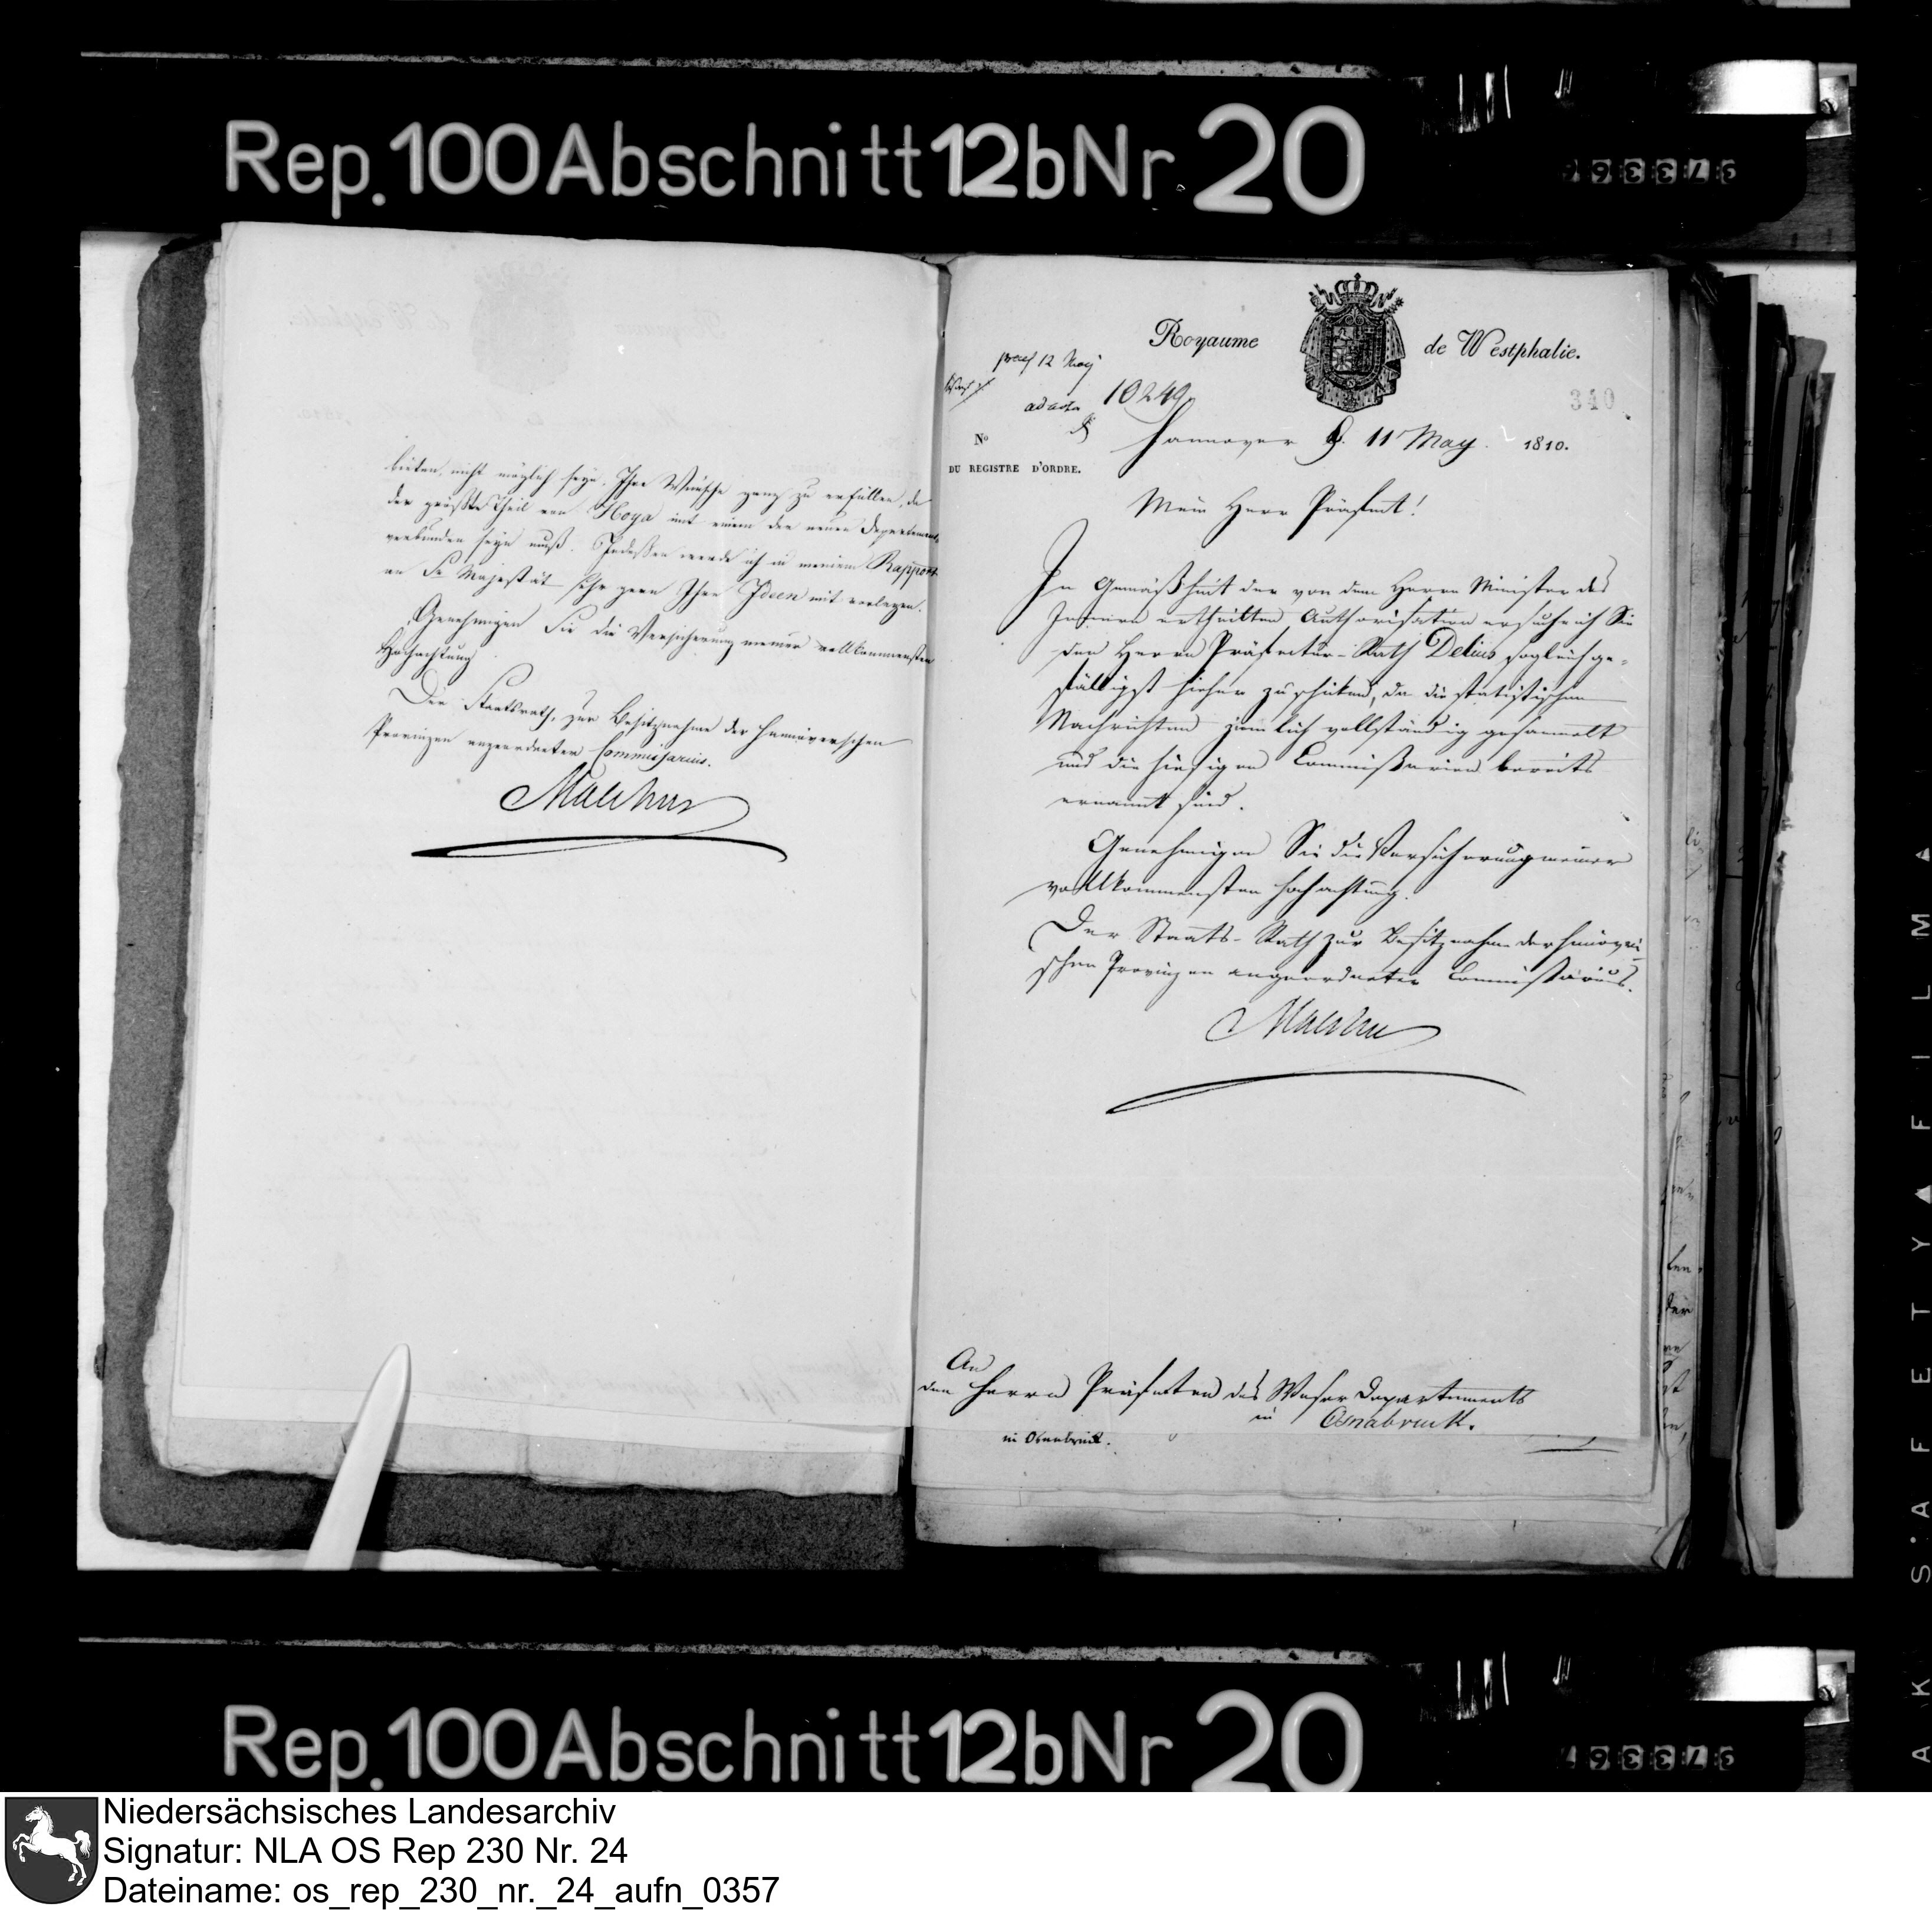 Rep. 100 Abschnitt 12b Nr. 20
bieten, nicht möglich seyn, Ihre Wünsche ganz zu erfüllen, da
der größte Theil von Hoya mit einem der neuen Departements
verbunden seyn muß. Indeßen werde ich in meinem Rapport
an Se Majestät sehr gern Ihre Ideen mit vorlegen.
Genehmigen Sie die Versicherung meiner vollkommensten
Hochachtung
Der Staatsrath, zur Besitznahme der Hannöverschen
Provinzen angeordneter Commissarius.
Malchus
Royaume de Westphalie.
praes 12 May
ad acta
10249.
340
No
DU REGISTRE D'ORDRE.
Hannover d. 11 May 1810.
Mein Herr Präfect!
In Gemäßheit der von dem Herrn Minister des
Innern ertheilten Authorisation ersuche ich Sie
den Herrn Präfectur-Rath Delius sogleich ge-
fälligst hieher zu schicken, da die statistischen
Nachrichten ziemlich vollständig gesammelt
und die hiesigen Commißarien bereits
ernannt sind.
Genehmigen Sie die Versicherung meiner
vollkommensten Hochachtung.
Der Staats-Rath zur Besitznahme der Hannöver-
schen Provinzen angeordneter Commissarius.
Malchus
An
den Herrn Präfecten des Weser Departements
in Osnabruck.
in Osnabrück.
Rep. 100 Abschnitt 12b Nr 20
AK SAFETY FILM
Niedersächsisches Landesarchiv
Signatur: NLA OS Rep 230 Nr. 24
Dateiname: os_rep_230_nr._24_aufn_0357